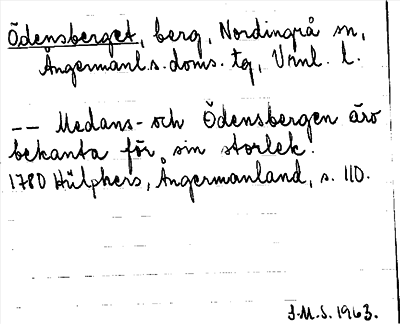 Ödensberget, berg, Nordingrå sn,
Ångermanl. s. doms. tg, Vrnl. l.
-- Medans- och Ödensbergen äro
bekanta för sin storlek.
1780 Hülphers, Ångermanland, s. 110.
J.M.S. 1963.